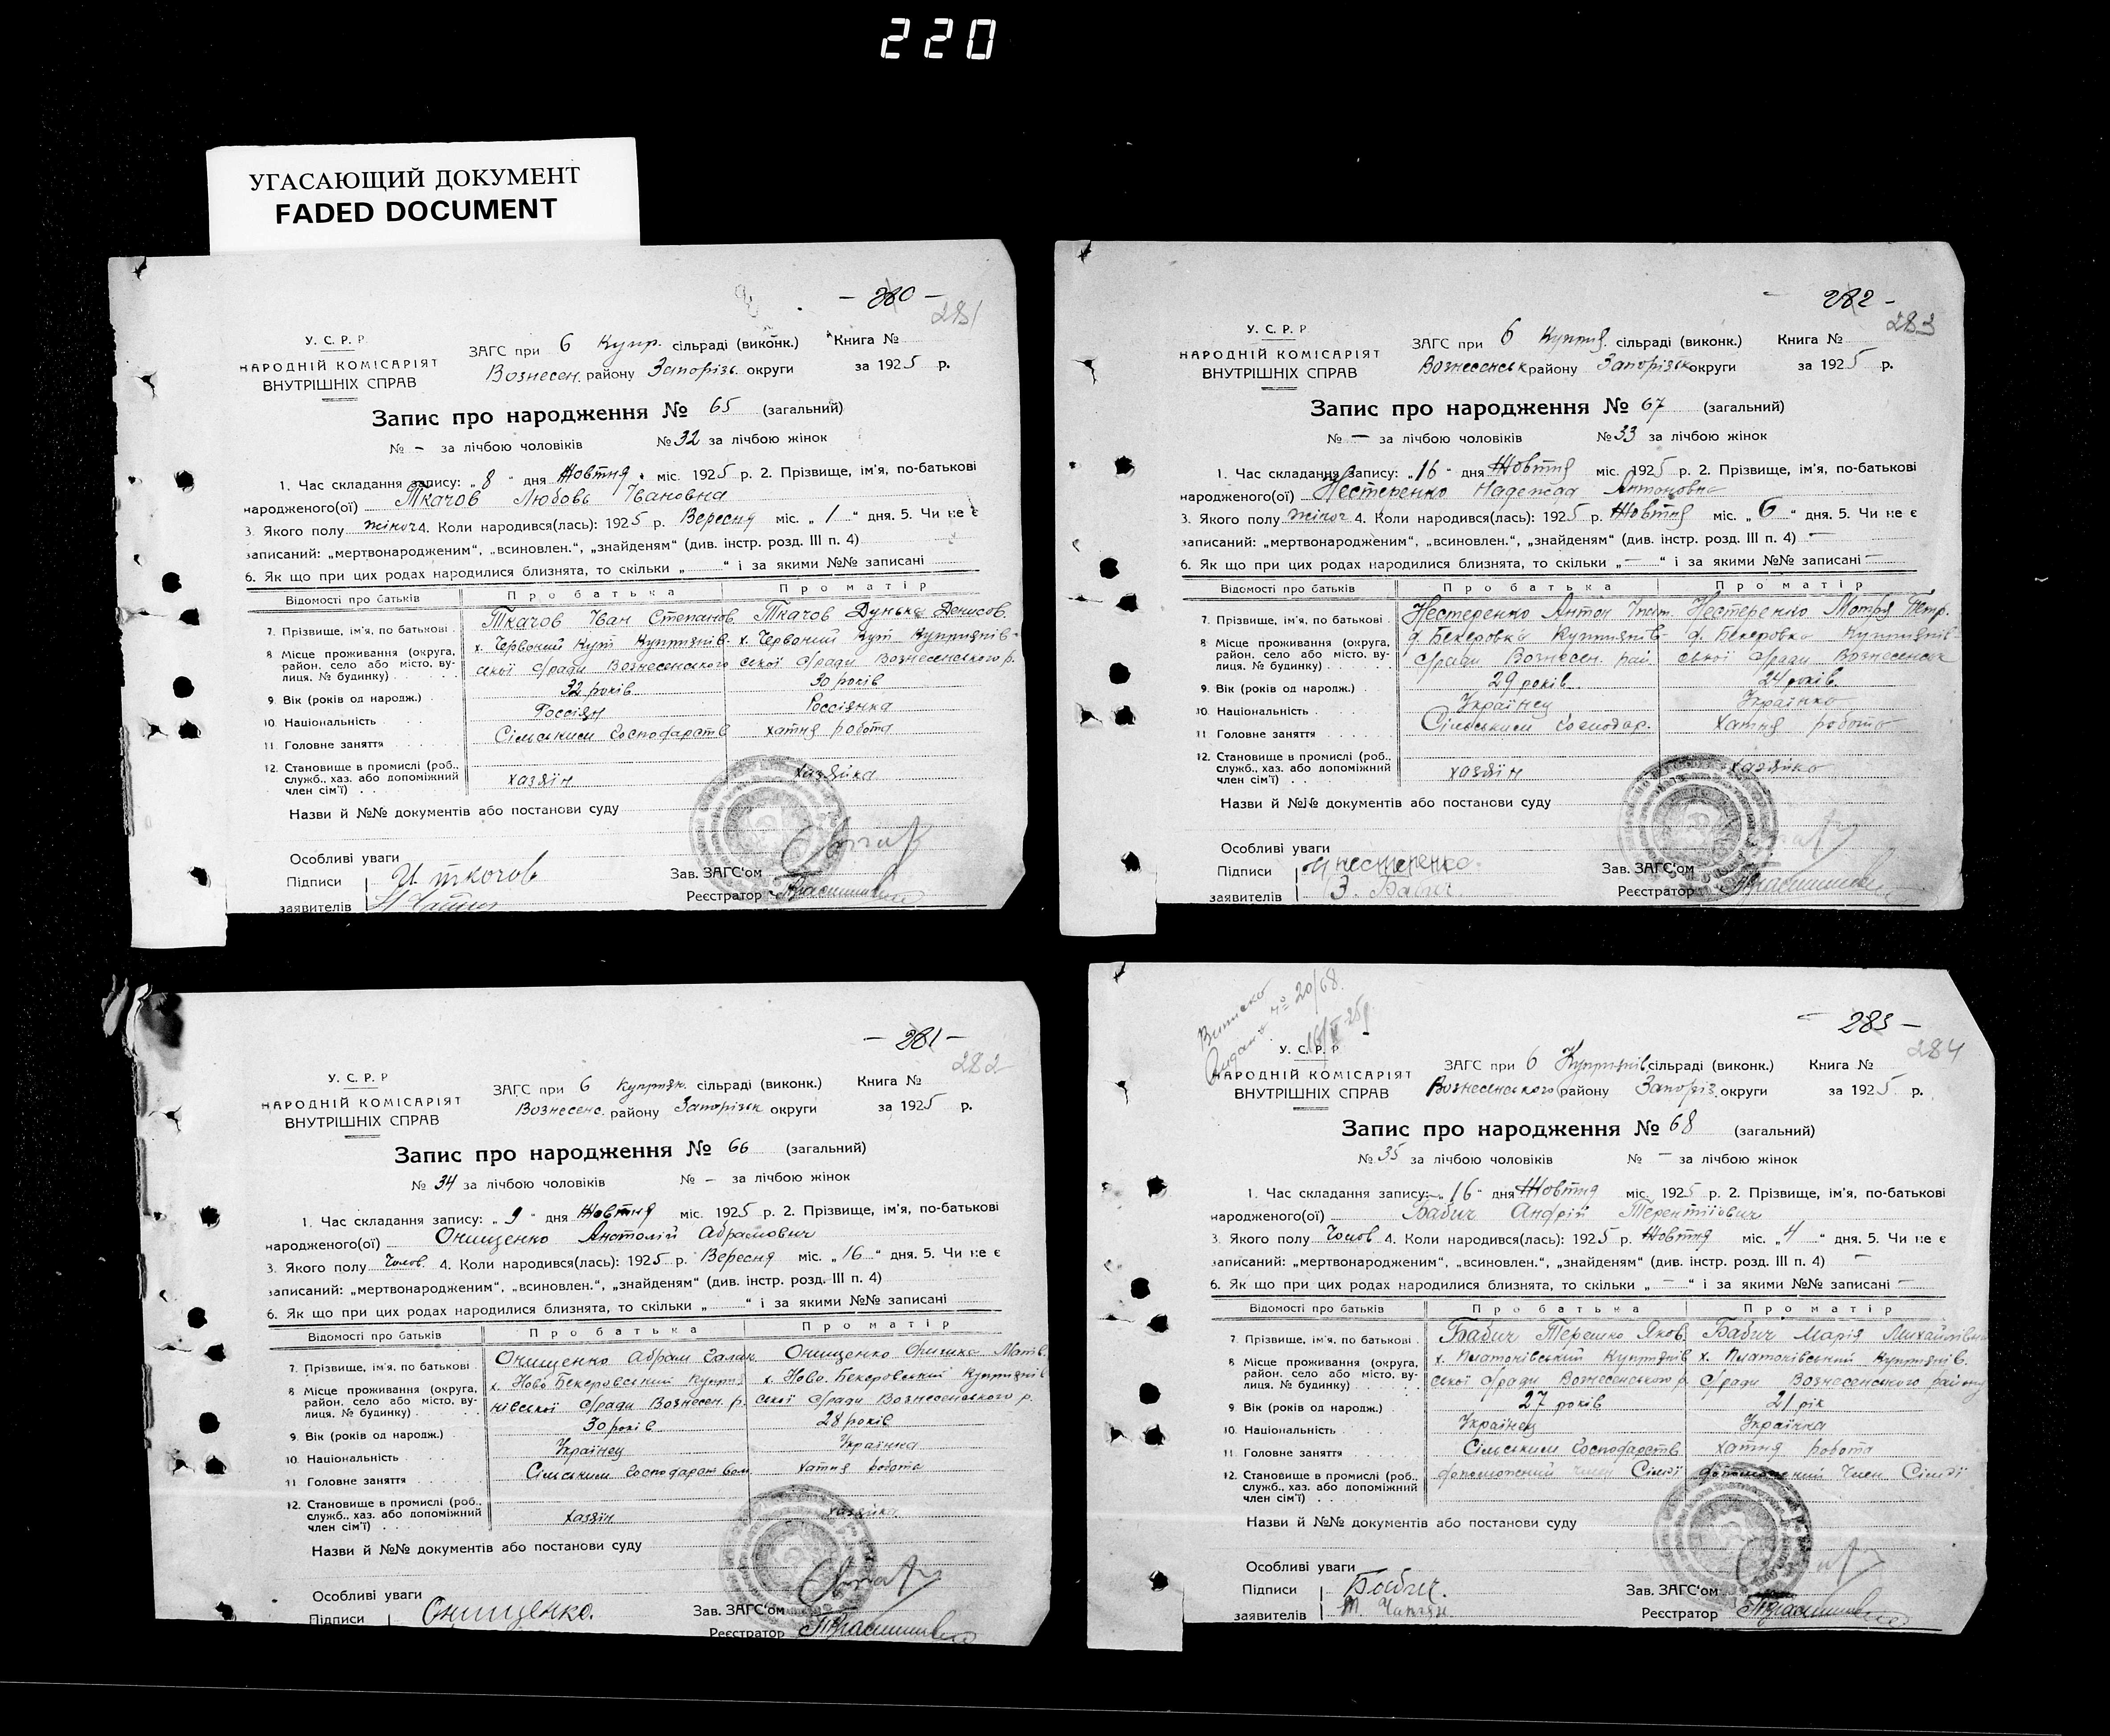 220
УГАСАЮЩИЙ ДОКУМЕНТ
FADED DOCUMENT
— 280 —
281
У. С. Р. Р
НАРОДНІЙ КОМІСАРІЯТ
ВНУТРІШНІХ СПРАВ
ЗАГС при 6 Купр. сільраді (виконк.) Книга №
Вознесен. району Запорізь. округи за 1925 р.
Запис про народження № 65 (загальний)
№ - за лічбою чоловіків № 32 за лічбою жінок
1. Час складання запису: „8" дня Жовтня міс. 1925 р. 2. Прізвище, ім'я, по-батькові
народженого(ої) Ткачов Любовь Івановна
3. Якого полу жіноч 4. Коли народився(лась): 1925 р. Вересня міс. „1" дня. 5. Чи не є
записаний: „мертвонародженим", „всиновлен.", „знайденям" (див. інстр. розд. III п. 4)
6. Як що при цих родах народилися близнята, то скільки „ " і за якими №№ записані
Відомості про батьків Про батька Про матір
7. Прізвище, ім'я, по батькові Ткачов Іван Степанов. Ткачов Дунька Денисов.
8 Місце проживання (округа, район, село або місто, вулиця, № будинку) х. Червоний Кут Купріянівської с/ради Вознесенського х. Червоний Кут Купріянівської с/ради Вознесенського р.
9. Вік (років од народж.) 32 років 30 років
10. Національність Россіян Россіянка
11. Головне заняття Сільським Господарств хатня робота
12. Становище в промислі (роб., служб., хаз. або допоміжний член сім'ї) хазяін хазяйка
Назви й №№ документів або постанови суду
Особливі уваги
Підписи заявителів И ткачов
Зав. ЗАГС'ом
Реєстратор
— 282 —
283
У. С. Р. Р
НАРОДНІЙ КОМІСАРІЯТ
ВНУТРІШНІХ СПРАВ
ЗАГС при 6 Купріян. сільраді (виконк.) Книга №
Вознесенськ району Запорізьк округи за 1925 р.
Запис про народження № 67 (загальний)
№ — за лічбою чоловіків № 33 за лічбою жінок
1. Час складання запису: „16" дня Жовтня міс. 1925 р. 2. Прізвище, ім'я, по-батькові
народженого(ої) Нестеренко Надежда Антоновна
3. Якого полу жіноч 4. Коли народився(лась): 1925 р. Жовтня міс. „6" дня. 5. Чи не є
записаний: „мертвонародженим", „всиновлен.", „знайденям" (див. інстр. розд. III п. 4) —
6. Як що при цих родах народилися близнята, то скільки „—" і за якими №№ записані —
Відомості про батьків Про батька Про матір
7. Прізвище, ім'я, по батькові Нестеренко Антон Нестеренко Мотря Петр.
8 Місце проживання (округа, район, село або місто, вулиця, № будинку) д. Бекеровка Купріянів- с/ради Вознесен. рай. д. Бекеровка Купріянівської с/ради Вознесенськ
9. Вік (років од народж.) 29 років 24 років
10. Національність Українец Українка
11. Головне заняття Сільським Господар. Хатня робота
12. Становище в промислі (роб., служб., хаз. або допоміжний член сім'ї) хазяін хазяйка
Назви й №№ документів або постанови суду
Особливі уваги
Підписи заявителів Нестеренко
З. Бабич.
Зав. ЗАГС'ом
Реєстратор
— 281 —
282
У. С. Р. Р
НАРОДНІЙ КОМІСАРІЯТ
ВНУТРІШНІХ СПРАВ
ЗАГС при 6 Купріян. сільраді (виконк.) Книга №
Вознесенс. району Запорізьк округи за 1925 р.
Запис про народження № 66 (загальний)
№ 34 за лічбою чоловіків № — за лічбою жінок
1. Час складання запису: „9" дня Жовтня міс. 1925 р. 2. Прізвище, ім'я, по-батькові
народженого(ої) Онищенко Анатолій Абрамович
3. Якого полу Чолов. 4. Коли народився(лась): 1925 р. Вересня міс. „16" дня. 5. Чи не є
записаний: „мертвонародженим", „всиновлен.", „знайденям" (див. інстр. розд. III п. 4)
6. Як що при цих родах народилися близнята, то скільки „ " і за якими №№ записані
Відомості про батьків Про батька Про матір
7. Прізвище, ім'я, по батькові Онищенко Абрам Онищенко Матв.
8 Місце проживання (округа, район, село або місто, вулиця, № будинку) х. Ново Бекеровський Купріянівської с/ради Вознесен. р. х. Ново. Бекеровський Купріянівської с/ради Вознесенського р.
9. Вік (років од народж.) 30 років 28 років
10. Національність Українец Українка
11 Головне заняття Сільським Господарством хатня робота
12. Становище в промислі (роб., служб., хаз. або допоміжний член сім'ї) хазяін хазяйка
Назви й №№ документів або постанови суду
Особливі уваги
Підписи Онищенко.
Зав. ЗАГС'ом
Реєстратор
— 283 —
284
№ 20/68.
У. С. Р. Р
НАРОДНІЙ КОМІСАРІЯТ
ВНУТРІШНІХ СПРАВ
ЗАГС при 6 Купріянів. сільраді (виконк.) Книга №
Вознесенського району Запоріз. округи за 1925 р.
Запис про народження № 68 (загальний)
№ 35 за лічбою чоловіків № — за лічбою жінок
1. Час складання запису: „16" дня Жовтня міс. 1925 р. 2. Прізвище, ім'я, по-батькові
народженого(ої) Бабич Андрій Терентіїович
3. Якого полу Чолов 4. Коли народився(лась): 1925 р. Жовтня міс. „4" дня. 5. Чи не є
записаний: „мертвонародженим", „всиновлен.", „знайденям" (див. інстр. розд. III п. 4) —
6. Як що при цих родах народилися близнята, то скільки „—" і за якими №№ записані —
Відомості про батьків Про батька Про матір
7. Прізвище, ім'я, по батькові Бабич Терешко Яков. Бабич Марія Михайлівна
8 Місце проживання (округа, район, село або місто, вулиця, № будинку) х. Платонівський Купріянівської с/ради Вознесенського р. х. Платонівський Купріянів. с/ради Вознесенського району
9 Вік (років од народж.) 27 років 21 рік
10. Національність Українец Українка
11 Головне заняття Сільським Господарств хатня робота
12. Становище в промислі (роб., служб., хаз. або допоміжний член сім'ї) допоможений член Сімії допоможений Член Сімії
Назви й №№ документів або постанови суду
Особливі уваги
Підписи заявителів Бабич.
Зав. ЗАГС'ом
Реєстратор